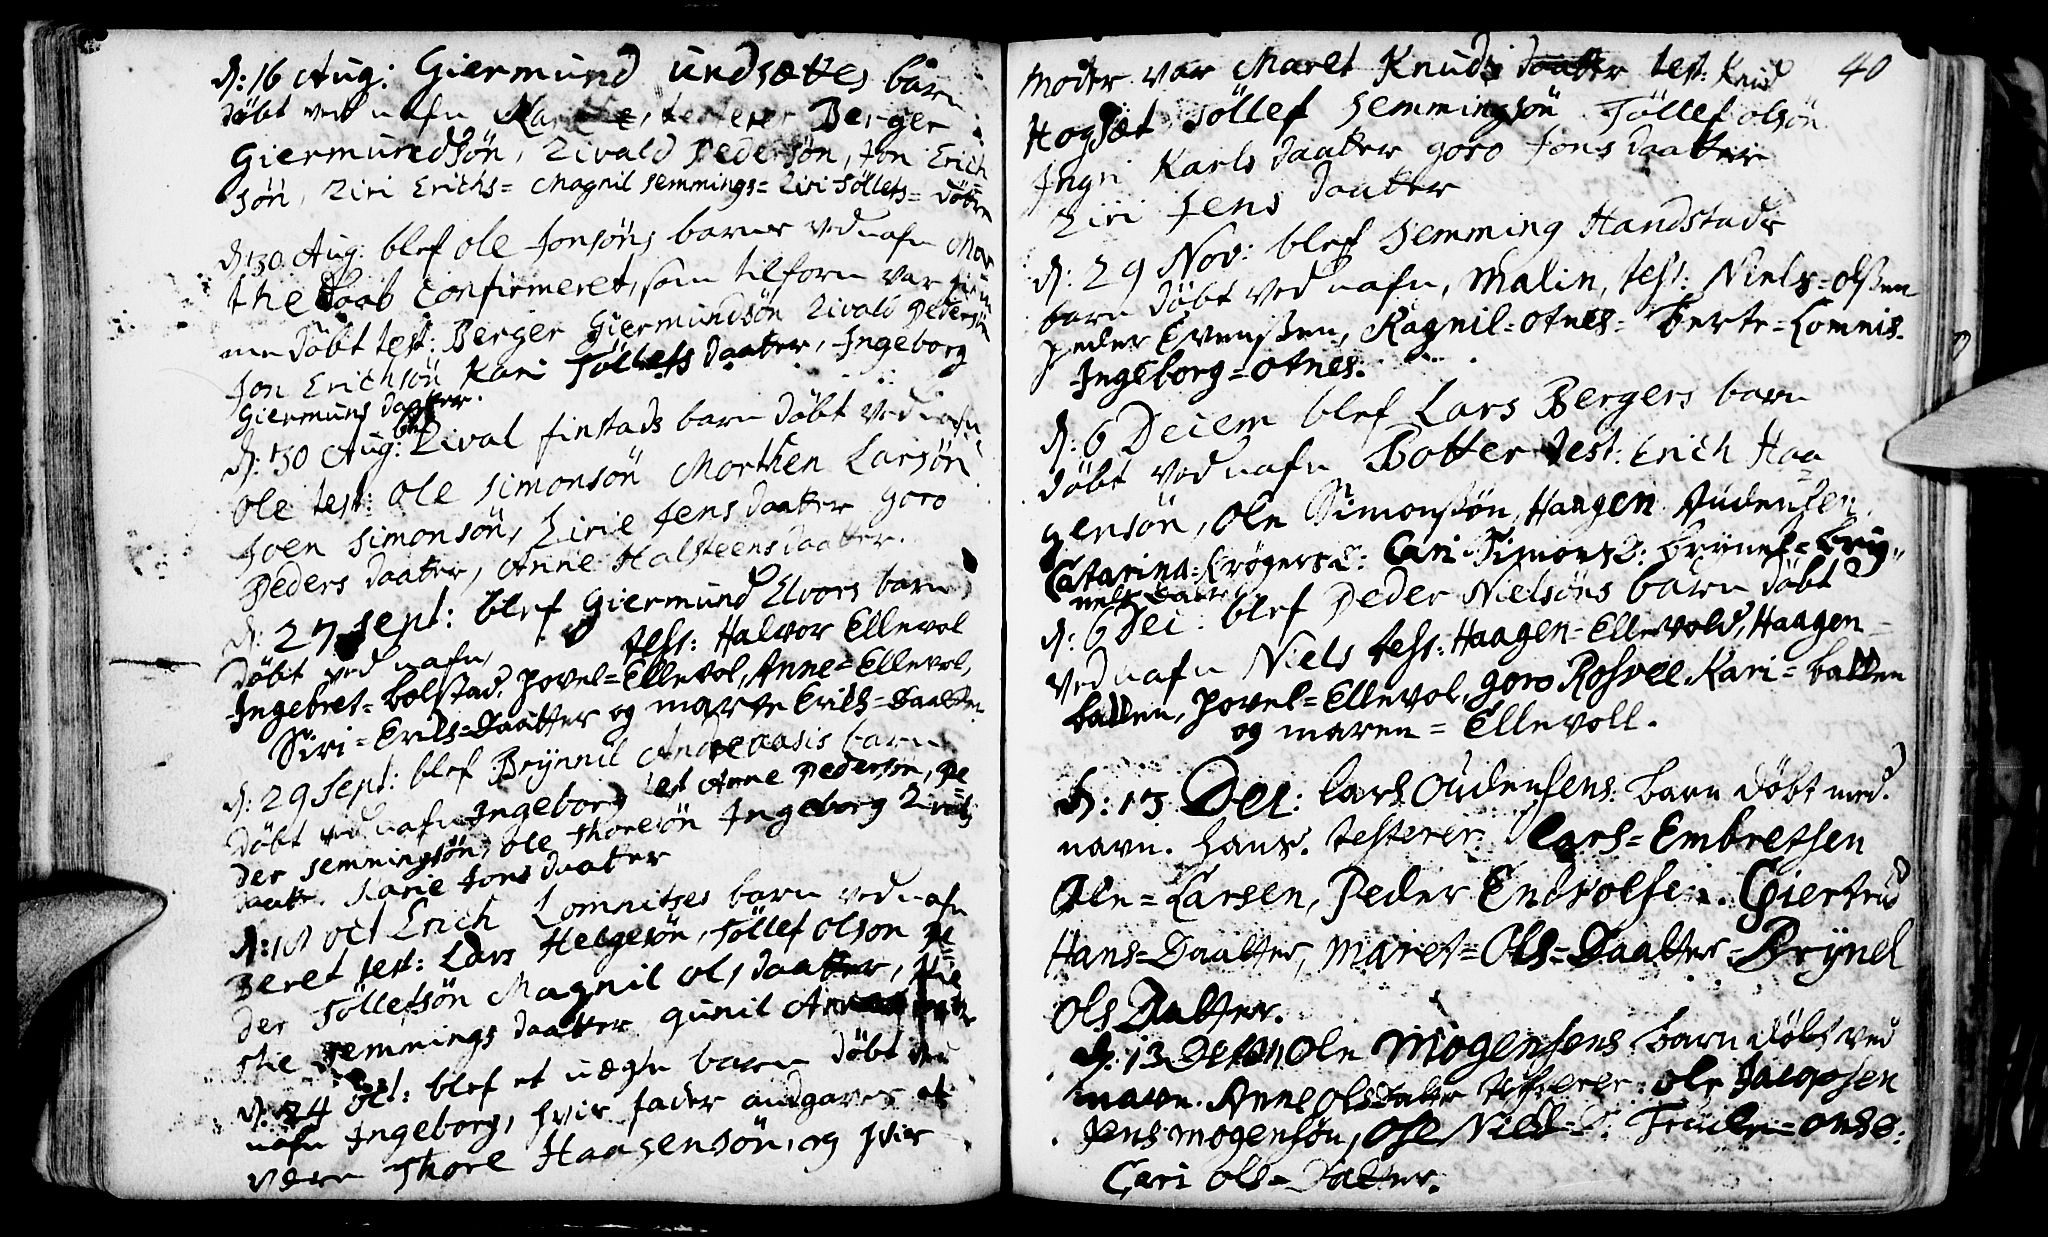 d: 16 Aug: Giermund undsættes barn
döbt ved nafn testerer Berger
Giermundsön, Zivald Pedersön, Jon Erich
sön, Ziri Erichs= Magnil semmings= Ziri Töllefs= döttre
d: 30 Aug: blef ole Jonsöns barn ved nafn Mar
the daab confirmeret, som tilforn var hiem
me döbt test: Berger Giermundsön Zivald Pedersön
Jon Erichsön Kari Töllefs daater, Ingeborg
Giermuns daatter.
d: 30 Aug: blef Zival finstads barn döbt ved nafn
Ole test: Ole simonsön Morthen Larsön
Joen simonsön, Zirie Jens daatter goro
Peders daater, Anne Halsteens daatter.
d: 27 sept: blef Giermund Elvors barn
döbt ved nafn, test: Halvor Ellevol
Ingebret= bolstad, povel= Ellevol, Anne= Ellevol,
Siri= Erils= Daatter og marte Erils= Daatter
d: 29 Sept: blef Brynnil Andreaasis barn
döbt ved nafn Ingeborg test Arne Pedersön, Pe=
der semmingsön, ole Thoresön Ingeborg Zivals
daatr. Karie Jons daater
d: 18 oct Erich Lomnitses barn ved nafn
Beret test: Lars Helgesön, Töllef olson pe=
der Töllefsön Magnil ols daatter,
the semmings daatter gunil
d: 24 oct: blef et uægte barn döbt ved
nafn Ingeborg, hvis fader audgaves at
være Thore Haagensön, og hvis
40
moder var Maret Knuds daatter test: Knud
Hogset, Töllef semmingsön Töllef olsön
Ingri Karls daatter goro Jons daatter
Ziri Jens daatter
d: 29 Nov: blef semming Handstads
barn döbt ved nafn, Malin, test: Niels= olssen
peder Evenssen, Ragnil= otnes= berte= Lomnis.
Ingeborg= otnes.
d: 6 Decem blef Lars Bergers barn
döbt ved nafn Botter test: Erich Haa
gensön, Ole Simonssön, Haagen Audensen,
Catarina= Krögers D: Cari Simons D: brynel= bry,,
nels Datter
d: 6 Dec: blef Peder Nielsöns barn döbt
ved nafn Niels test: Haagen= Ellevold, Haagen=
balken, povel= Ellevol, goro Rosvel Kari= balken
og maren= Ellevoll.
d: 13 Dec: Lars Oudensens: barn döbt med
navn. hans. testerer: Lars= Embretsen
Ole= Larsen, Peder Endvolsen. Giertrud
Hans= Daatter, Maret= Ols= Daatter= Brÿnel
Ols Datter.
d: 13 Decem, Ole Mogensens barn döbt ved
navn. Anne ols Datter testerer: Ole Jacopsen
Jens mogensön, Ole Nils D: Truden= onse:
Cari Ols= Datter.